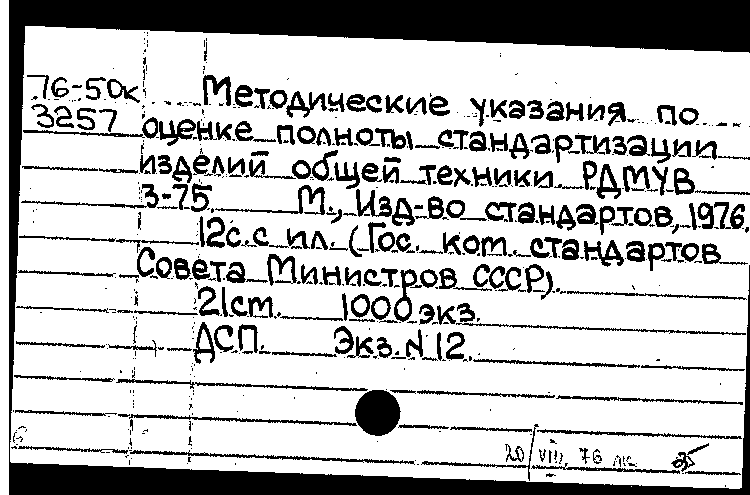 76-50к Методические указания по
3257 оценке полноты стандартизации
изделий общей техники. РДМУВ
3-75. М., Изд-во стандартов, 1976.
12с. с ил. (Гос. ком. стандартов
Совета Министров СССР).
21см. 1000 экз.
ДСП. Экз. N 12.
20/VIII. 76